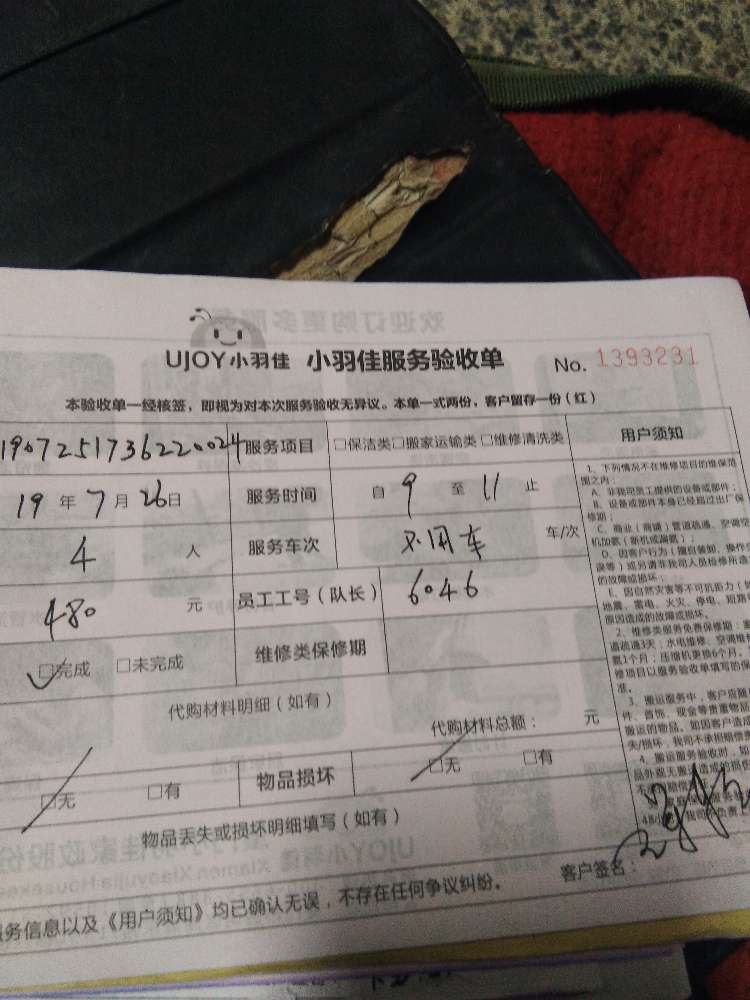 UJOY小羽佳 小羽佳服务验收单 No. 1393231
本验收单一经核签，即视为对本次服务验收无异议。本单一式两份，客户留存一份（红）
190725173622 0024 服务项目 □保洁类□搬家运输类□维修清洗类 用户须知
19年7月26日 服务时间 自9至11止
4人 服务车次 不用车 车/次
480元 员工工号（队长） 6046
□完成 □未完成 维修类保修期
代购材料明细（如有）
代购材料总额： 元
□无 □有 物品损坏 □无 □有
物品丢失或损坏明细填写（如有）
客户签名：
务信息以及《用户须知》均已确认无误，不存在任何争议纠纷。
1、下列情况不在维修项目的维保范
围之内：
A、非我司员工提供的设备或部件；
B、设备或部件本身已经超过出厂保
修期；
C、商业（商铺）管道疏通、空调空
机加氨（新机或漏氨）；
D、因客户行为（擅自装卸、操作
误等）或另请非我司人员检修所造
的故障或损坏；
E、因自然灾害等不可抗拒力（如
地震、雷电、火灾、停电、短路
原因造成的故障或损坏。
2、维修类服务免费保修期：
道疏通3天；水电维修、空调维
氨1个月；压缩机更换6个月。
修项目以服务验收单填写的
准。
3、搬运服务中，客户应
件、首饰、现金等贵重物
搬运的物品。如因客户造
失/损坏，我司不承担赔偿
4、搬运服务验收时，如
品外观无搬运造成的损